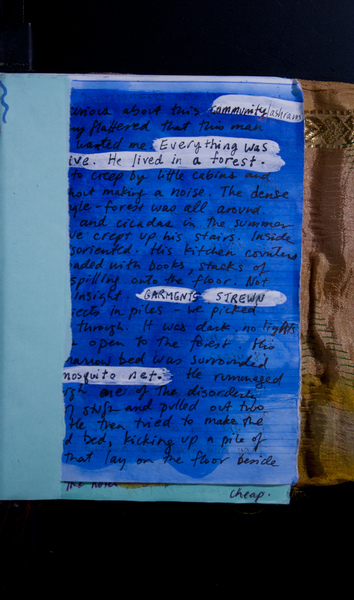 curious about this community/ashram
flattered that this man
wanted me. Everything was
ive. He lived in a forest.
to creep by little cabins and
hout making a noise. The dense
gle-forest was all around
and cicadas in the summer
We crept up his stairs. Inside
soriented. His kitchen counters
oaded with books, stacks of
spilling onto the floor. Not
insight. GARMENTS STREWN
jects in piles - we picked
through. It was dark, no lights
open to the forest. His
narrow bed was surrounded
mosquito net. He rummaged
gh one of the disorderly
of stuff and pulled out two
He then tried to make the
d bed, kicking up a pile of
that lay on the floor beside
the hotel
cheap.